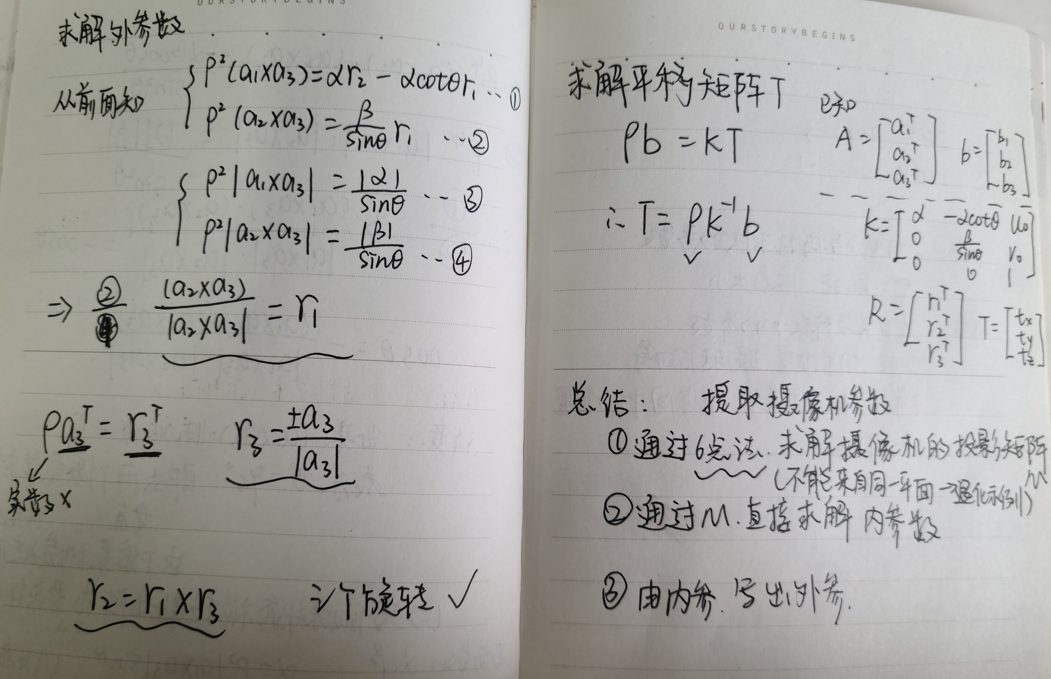 OURSTORYBEGINS
求解外参数
从前面知 { ρ²(a₁×a₃)=αr₂ − αcotθr₁ ··①
ρ²(a₂×a₃)=β/sinθ r₁ ··②
{ ρ²|a₁×a₃| = |α|/sinθ ··③
ρ²|a₂×a₃| = |β|/sinθ ··④
⇒ ②/④ (a₂×a₃)/|a₂×a₃| = r₁
ρa₃ᵀ = r₃ᵀ r₃ = ±a₃/|a₃|
实数×
r₂ = r₁ × r₃ 三个旋转 ✓
OURSTORYBEGINS
求解平移矩阵T 已知
ρb = KT A = [a₁ᵀ a₂ᵀ a₃ᵀ] b = [b₁ b₂ b₃]
∴ T = ρK⁻¹b K = [α −αcotθ u₀ 0 β/sinθ v₀ 0 0 1]
✓ ✓
R = [r₁ᵀ r₂ᵀ r₃ᵀ] T = [tx ty tz]
总结: 提取摄像机参数
①通过6点法.求解摄像机的投影矩阵M
(不能来自同一平面→退化示例)
②通过M.直接求解内参数
③由内参.写出外参.